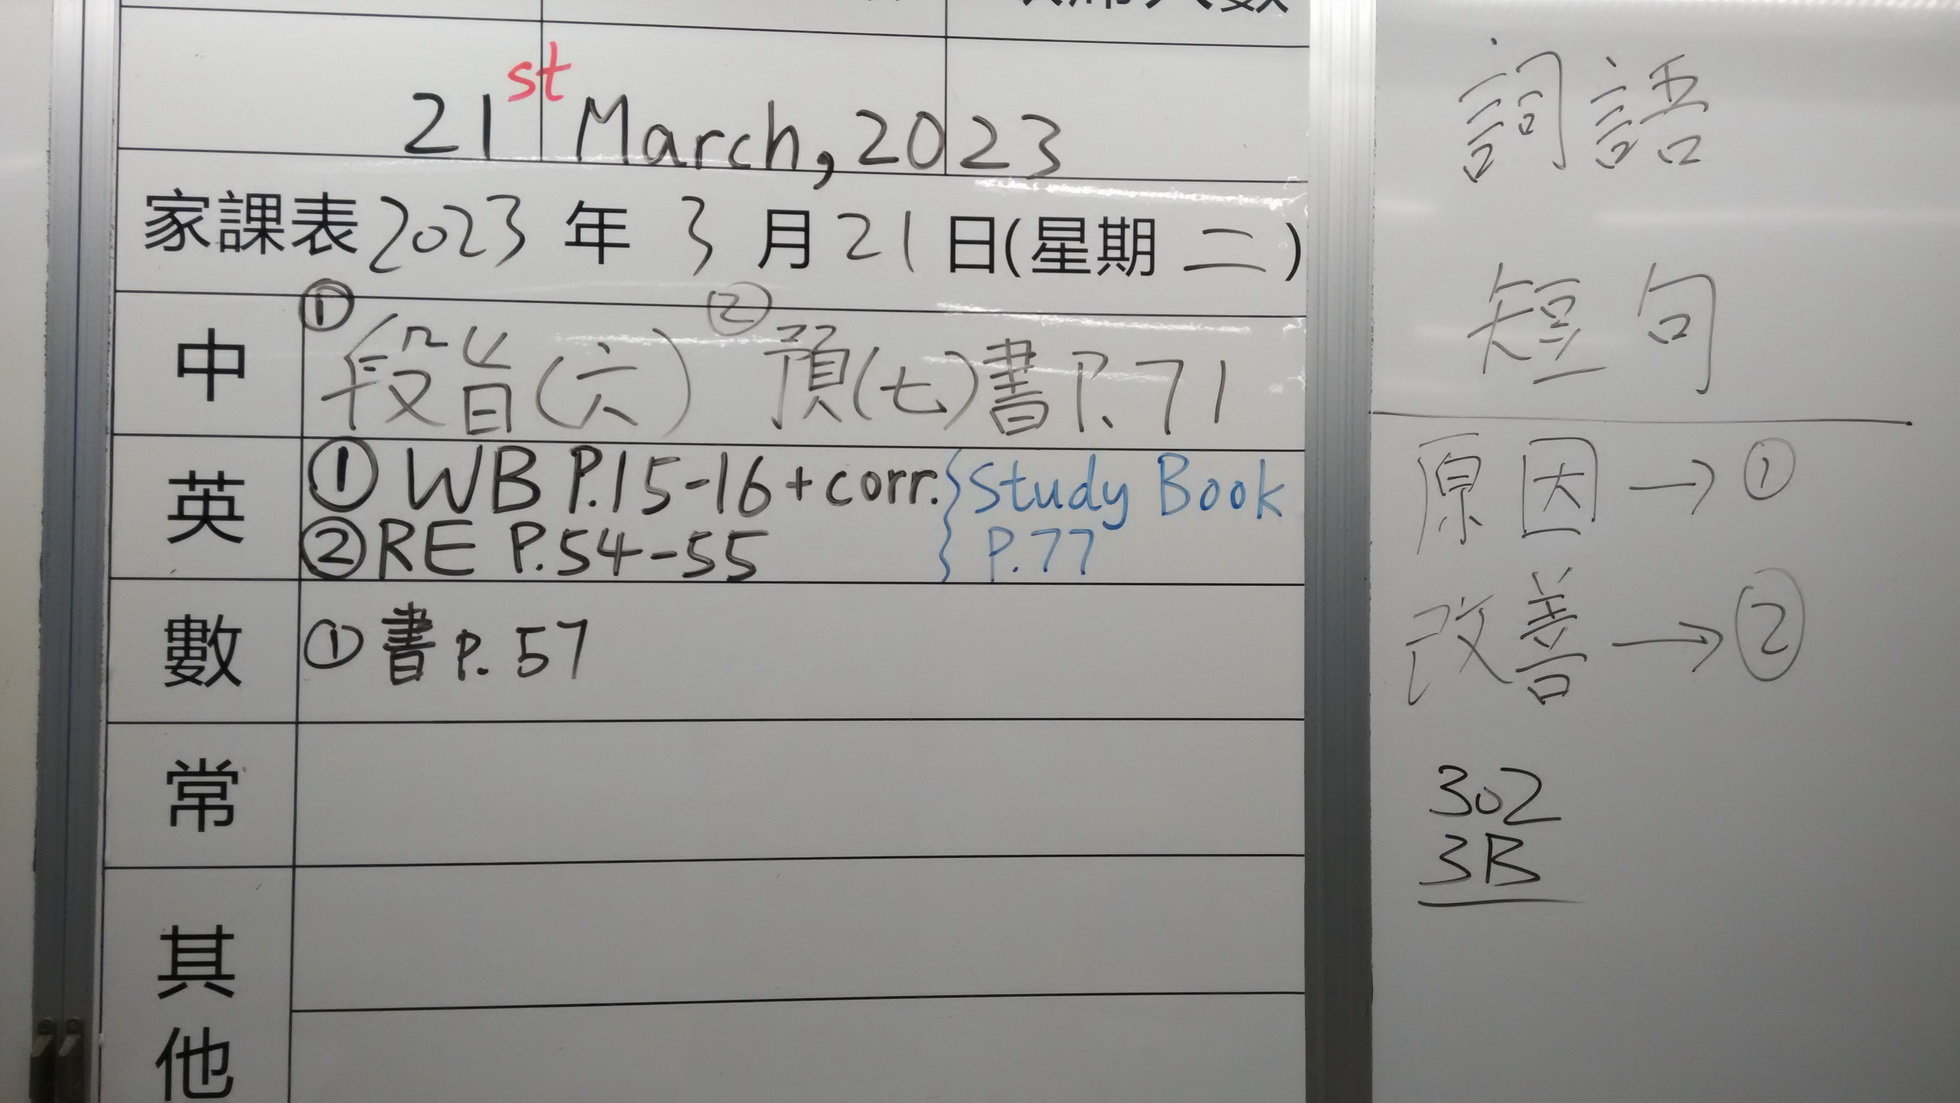 21st March, 2023
家課表 2023 年 3 月 21 日(星期 二)
中 ① 段旨(六) ② 預(七)書P.71
英 ① WB P.15-16+corr. Study Book
② RE P.54-55 P.77
數 ① 書 P.57
常
其他
詞語
短句
原因→①
改善→②
302
3B